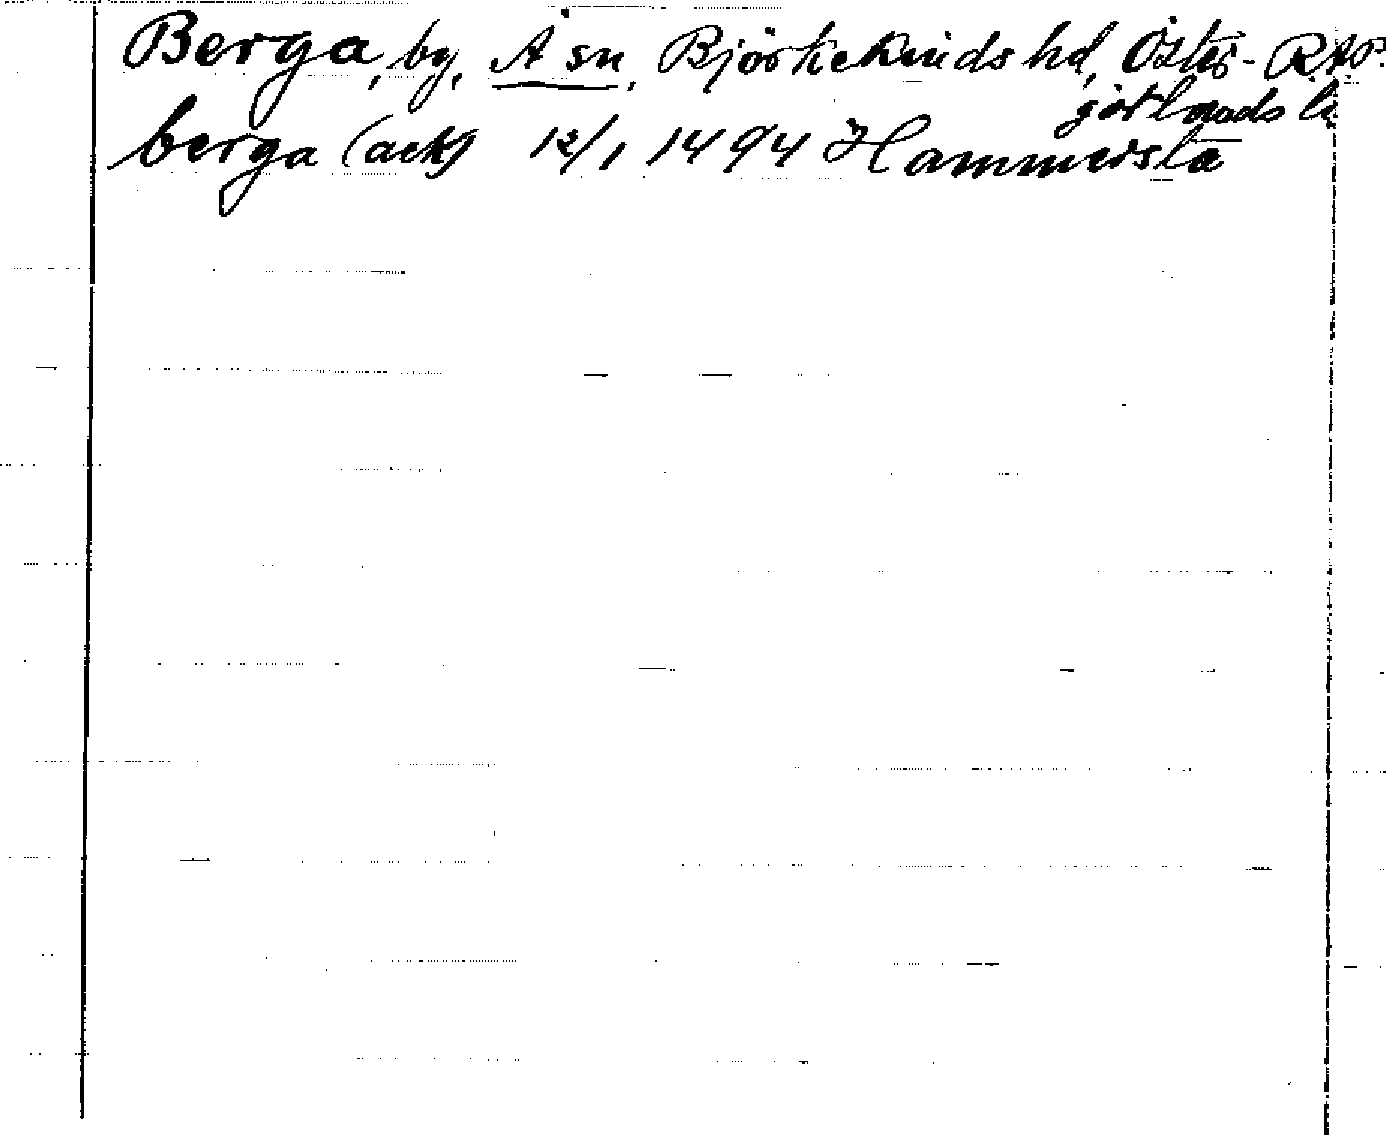 Berga, by, Å sn, Björkekinds hd, Öster- RAP.
götlands l.
berga (ack) 12/1 1494 Hammersta